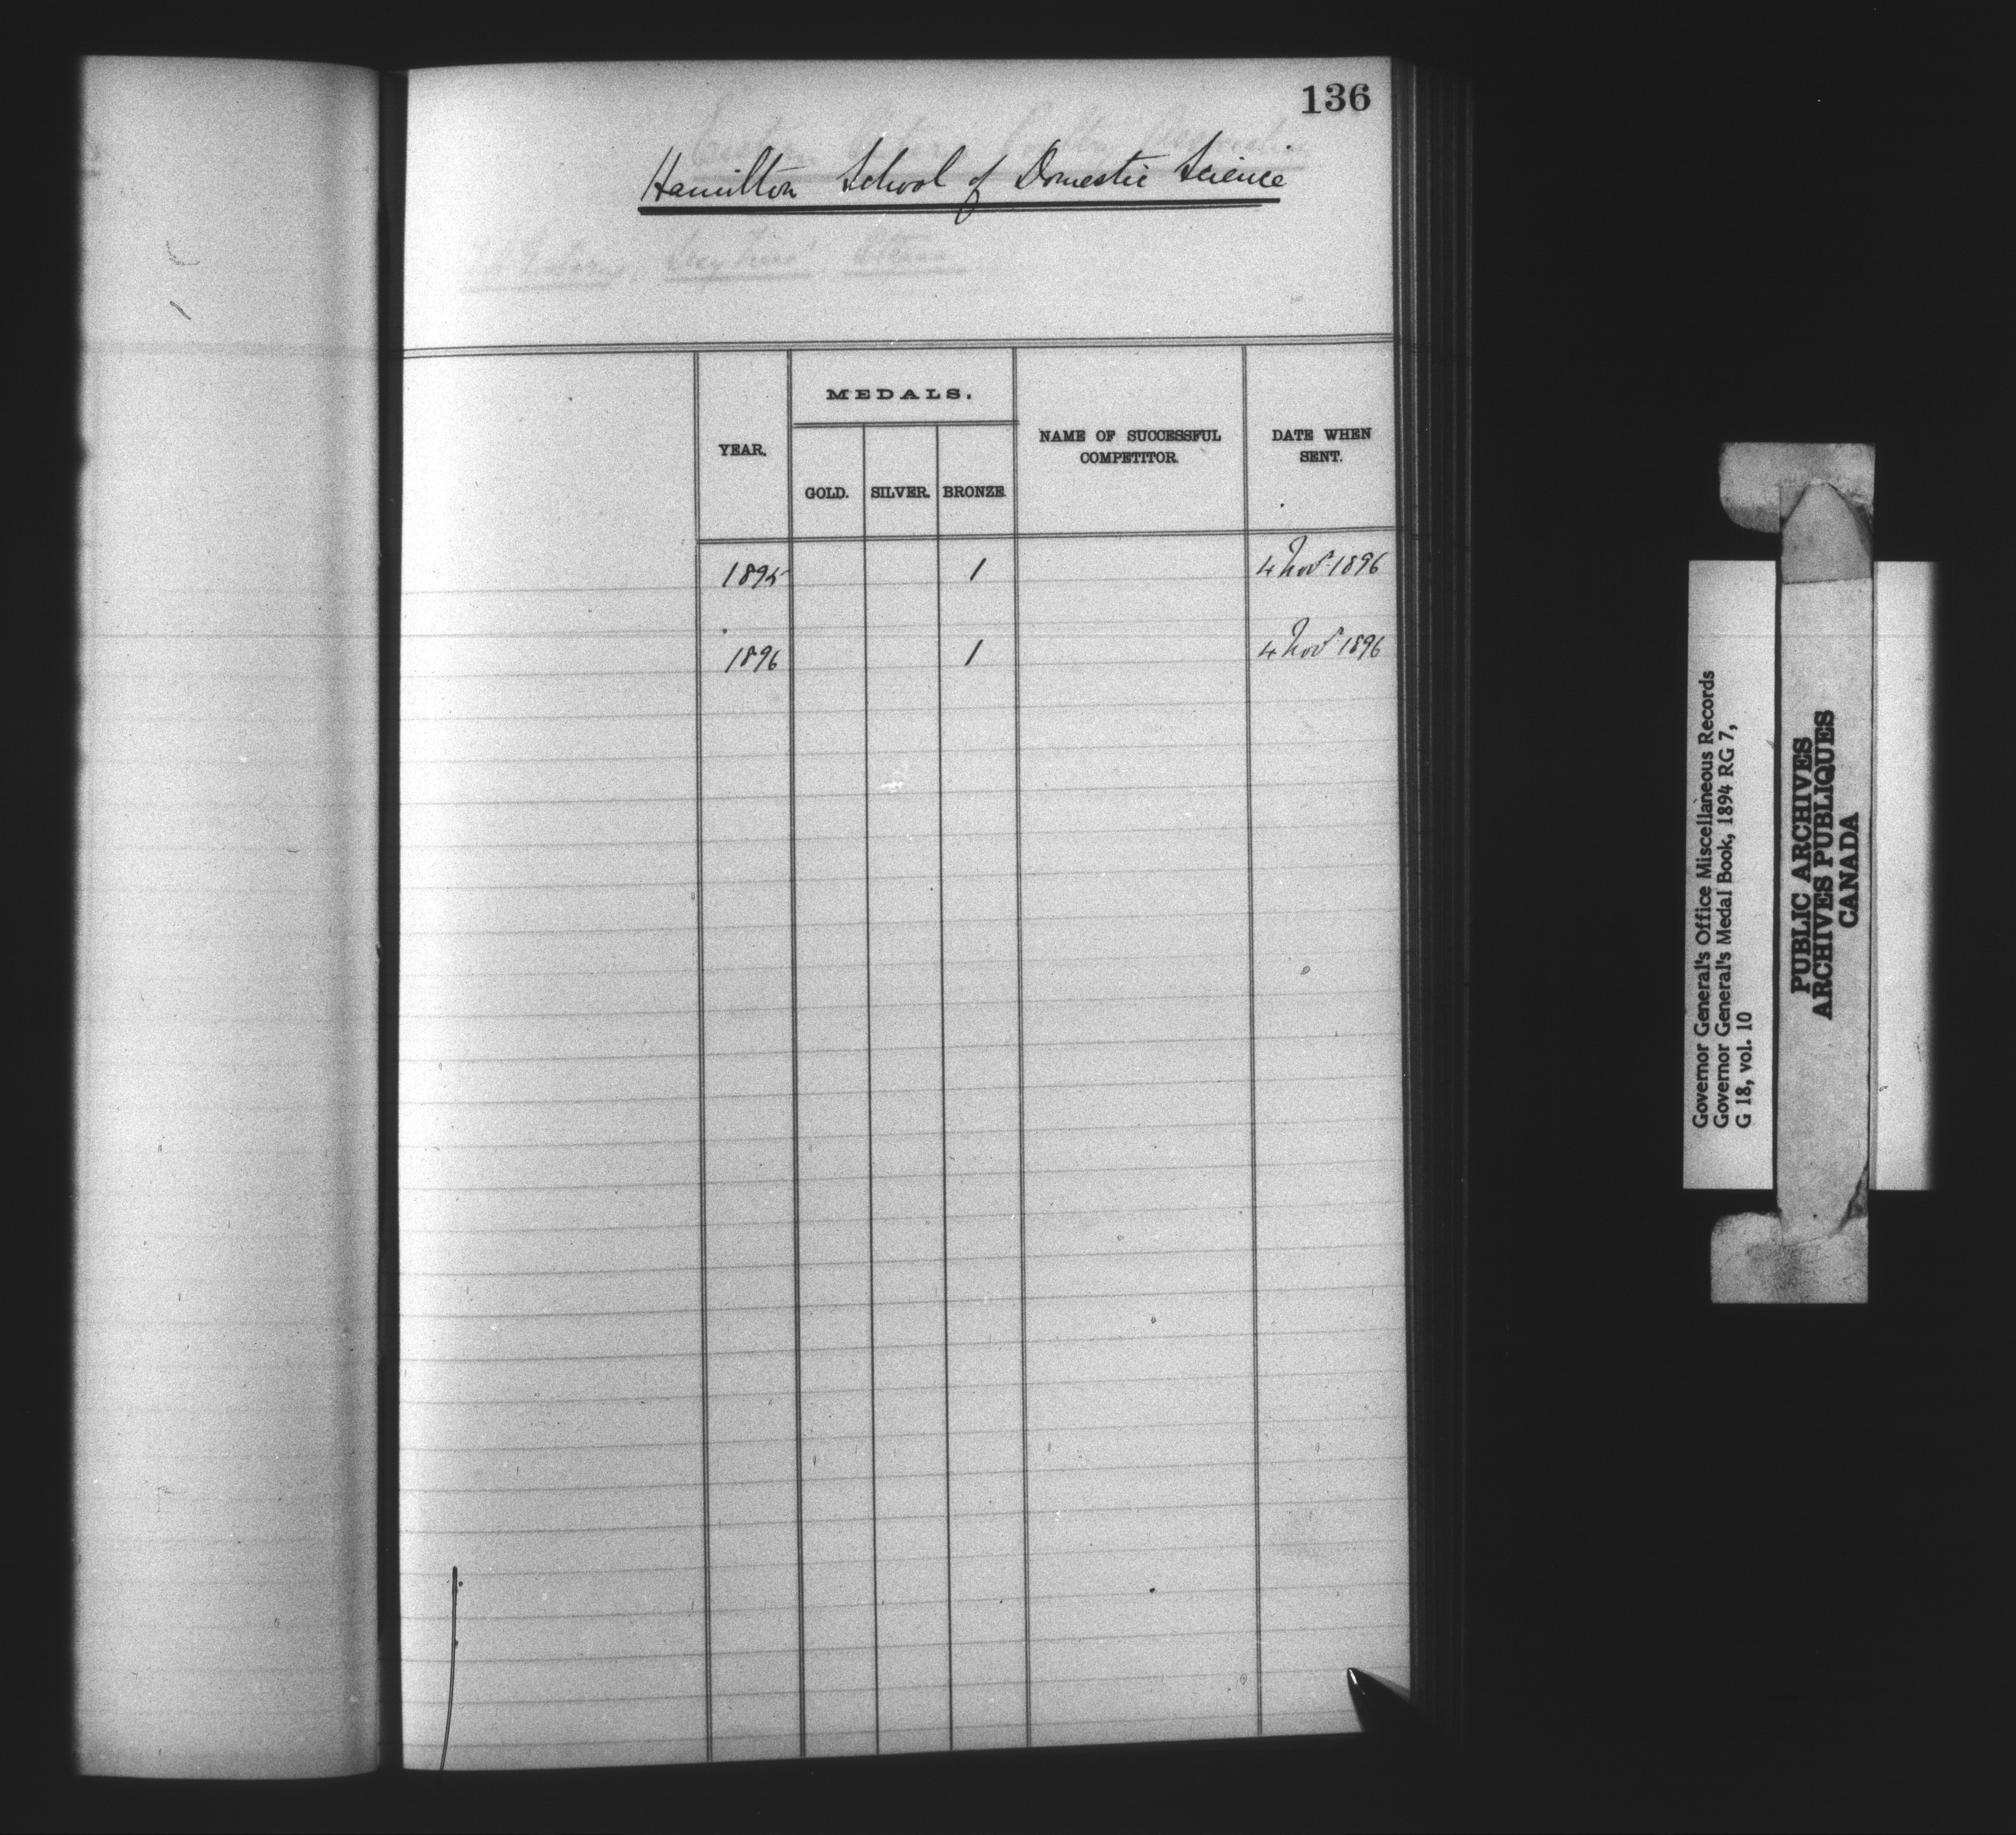 136
Hamilton School of Domestic Science
MEDALS.
YEAR.
NAME OF SUCCESSFUL
COMPETITOR.
DATE WHEN
SENT.
GOLD. SILVER. BRONZE.
1895 1 4 Nov 1896
1896 1 4 Nov 1896
Governor General's Office Miscellaneous Records
Governor General's Medal Book, 1894 RG 7,
G 18, vol. 10
PUBLIC ARCHIVES
ARCHIVES PUBLIQUES
CANADA